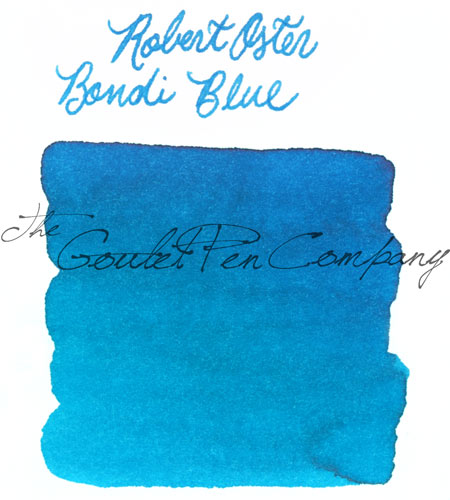 Robert Oster
Bondi Blue
The
Goulet Pen Company